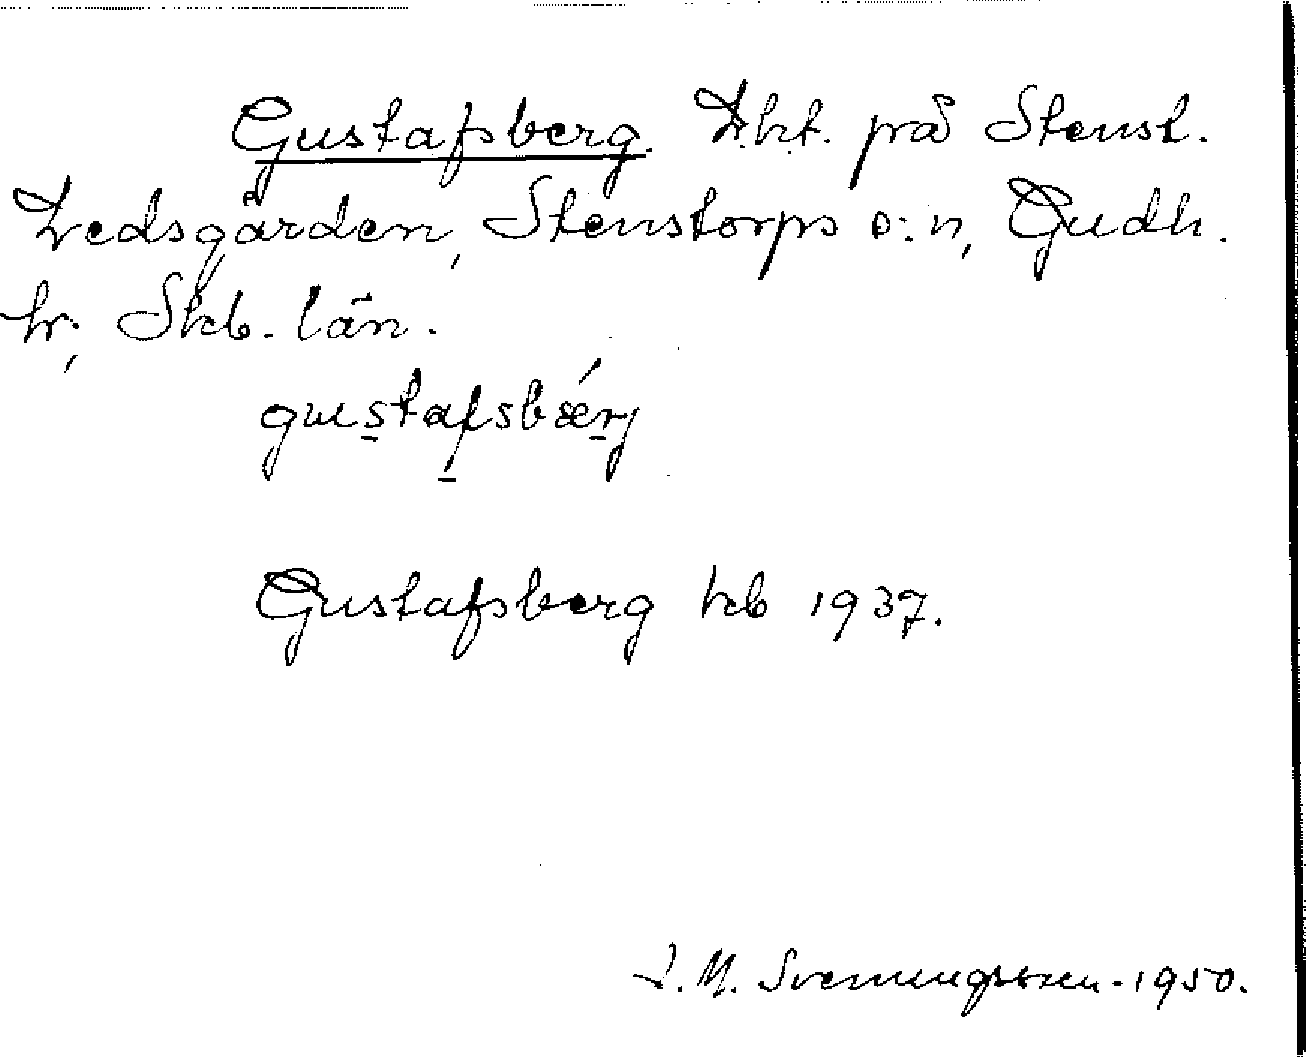 Gustafsberg. Lht. på Stenst.
Ledsgården, Stenstorps s:n, Gudh.
hr, Skb. län.
gustafsbǽrj
Gustafsberg hcb 1937.
I. M. Svenungsson - 1950.